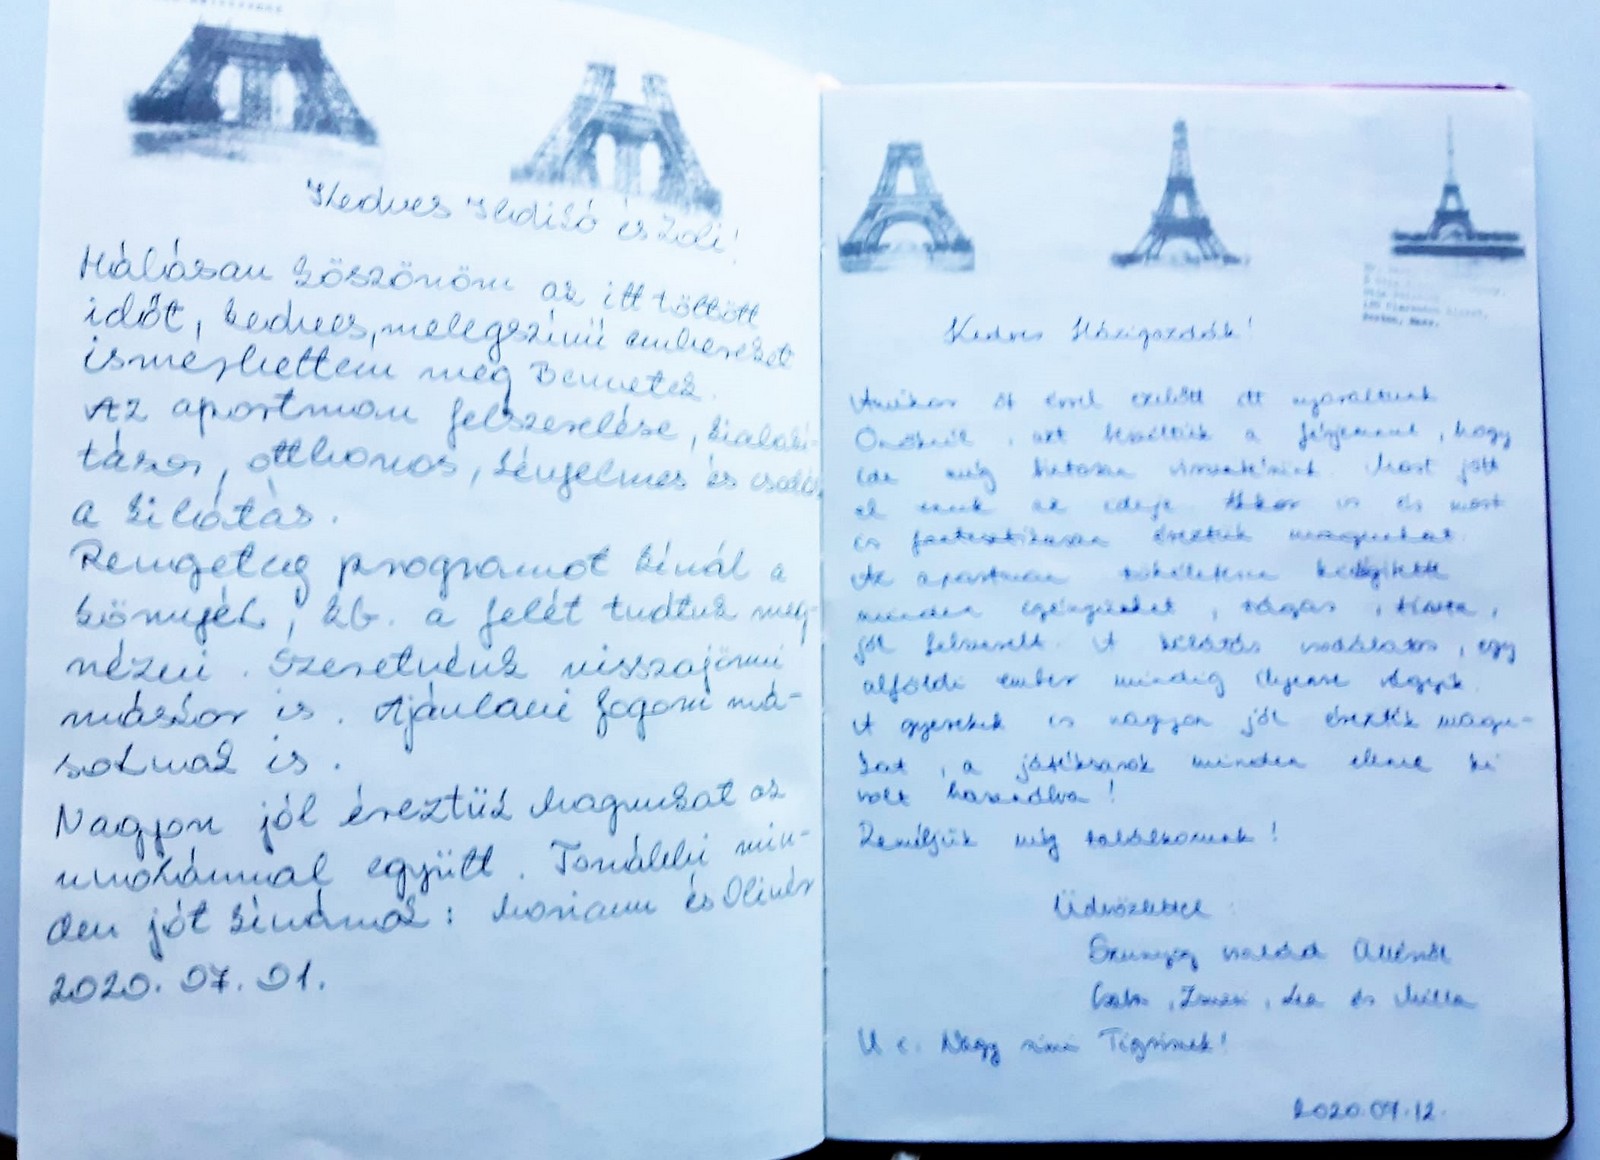 Kedves Ildikó és Zoli!
Hálásan köszönöm az itt töltött
időt, kedves, melegszívű embereket
ismerhettem meg Bennetek.
Az apartman felszerelése, kialakí-
tása, otthonos, kényelmes és csodás
a kilátás.
Rengeteg programot kínál a
környék, kb. a felét tudtuk meg-
nézni. Szeretnénk visszajönni
máskor is. Ajánlani fogom má-
soknak is.
Nagyon jól éreztük magunkat az
unokámmal együtt. További min-
den jót kívánok: Mariann és Olivér
2020. 07. 01.
Kedves Házigazdák!
Amikor öt évvel ezelőtt itt nyaraltunk
Önöknél, azt beszéltük a férjemmel, hogy
ide még biztosan visszatérünk. Most jött
el ennek az ideje. Akkor is és most
is fantasztikusan éreztük magunkat.
Az apartman tökéletesen kielégítette
minden igényünket, tágas, tiszta,
jól felszerelt. A kilátás csodálatos, egy
alföldi ember mindig ilyenre vágyik.
A gyerekek is nagyon jól érezték magu-
kat, a játéksarok minden eleme ki
volt használva!
Reméljük még találkozunk!
Üdvözlettel:
család
Csaba, Zsuzsi, Lea és Milla
U.i. Nagy simi Tigrisnek!
2020.07.12.